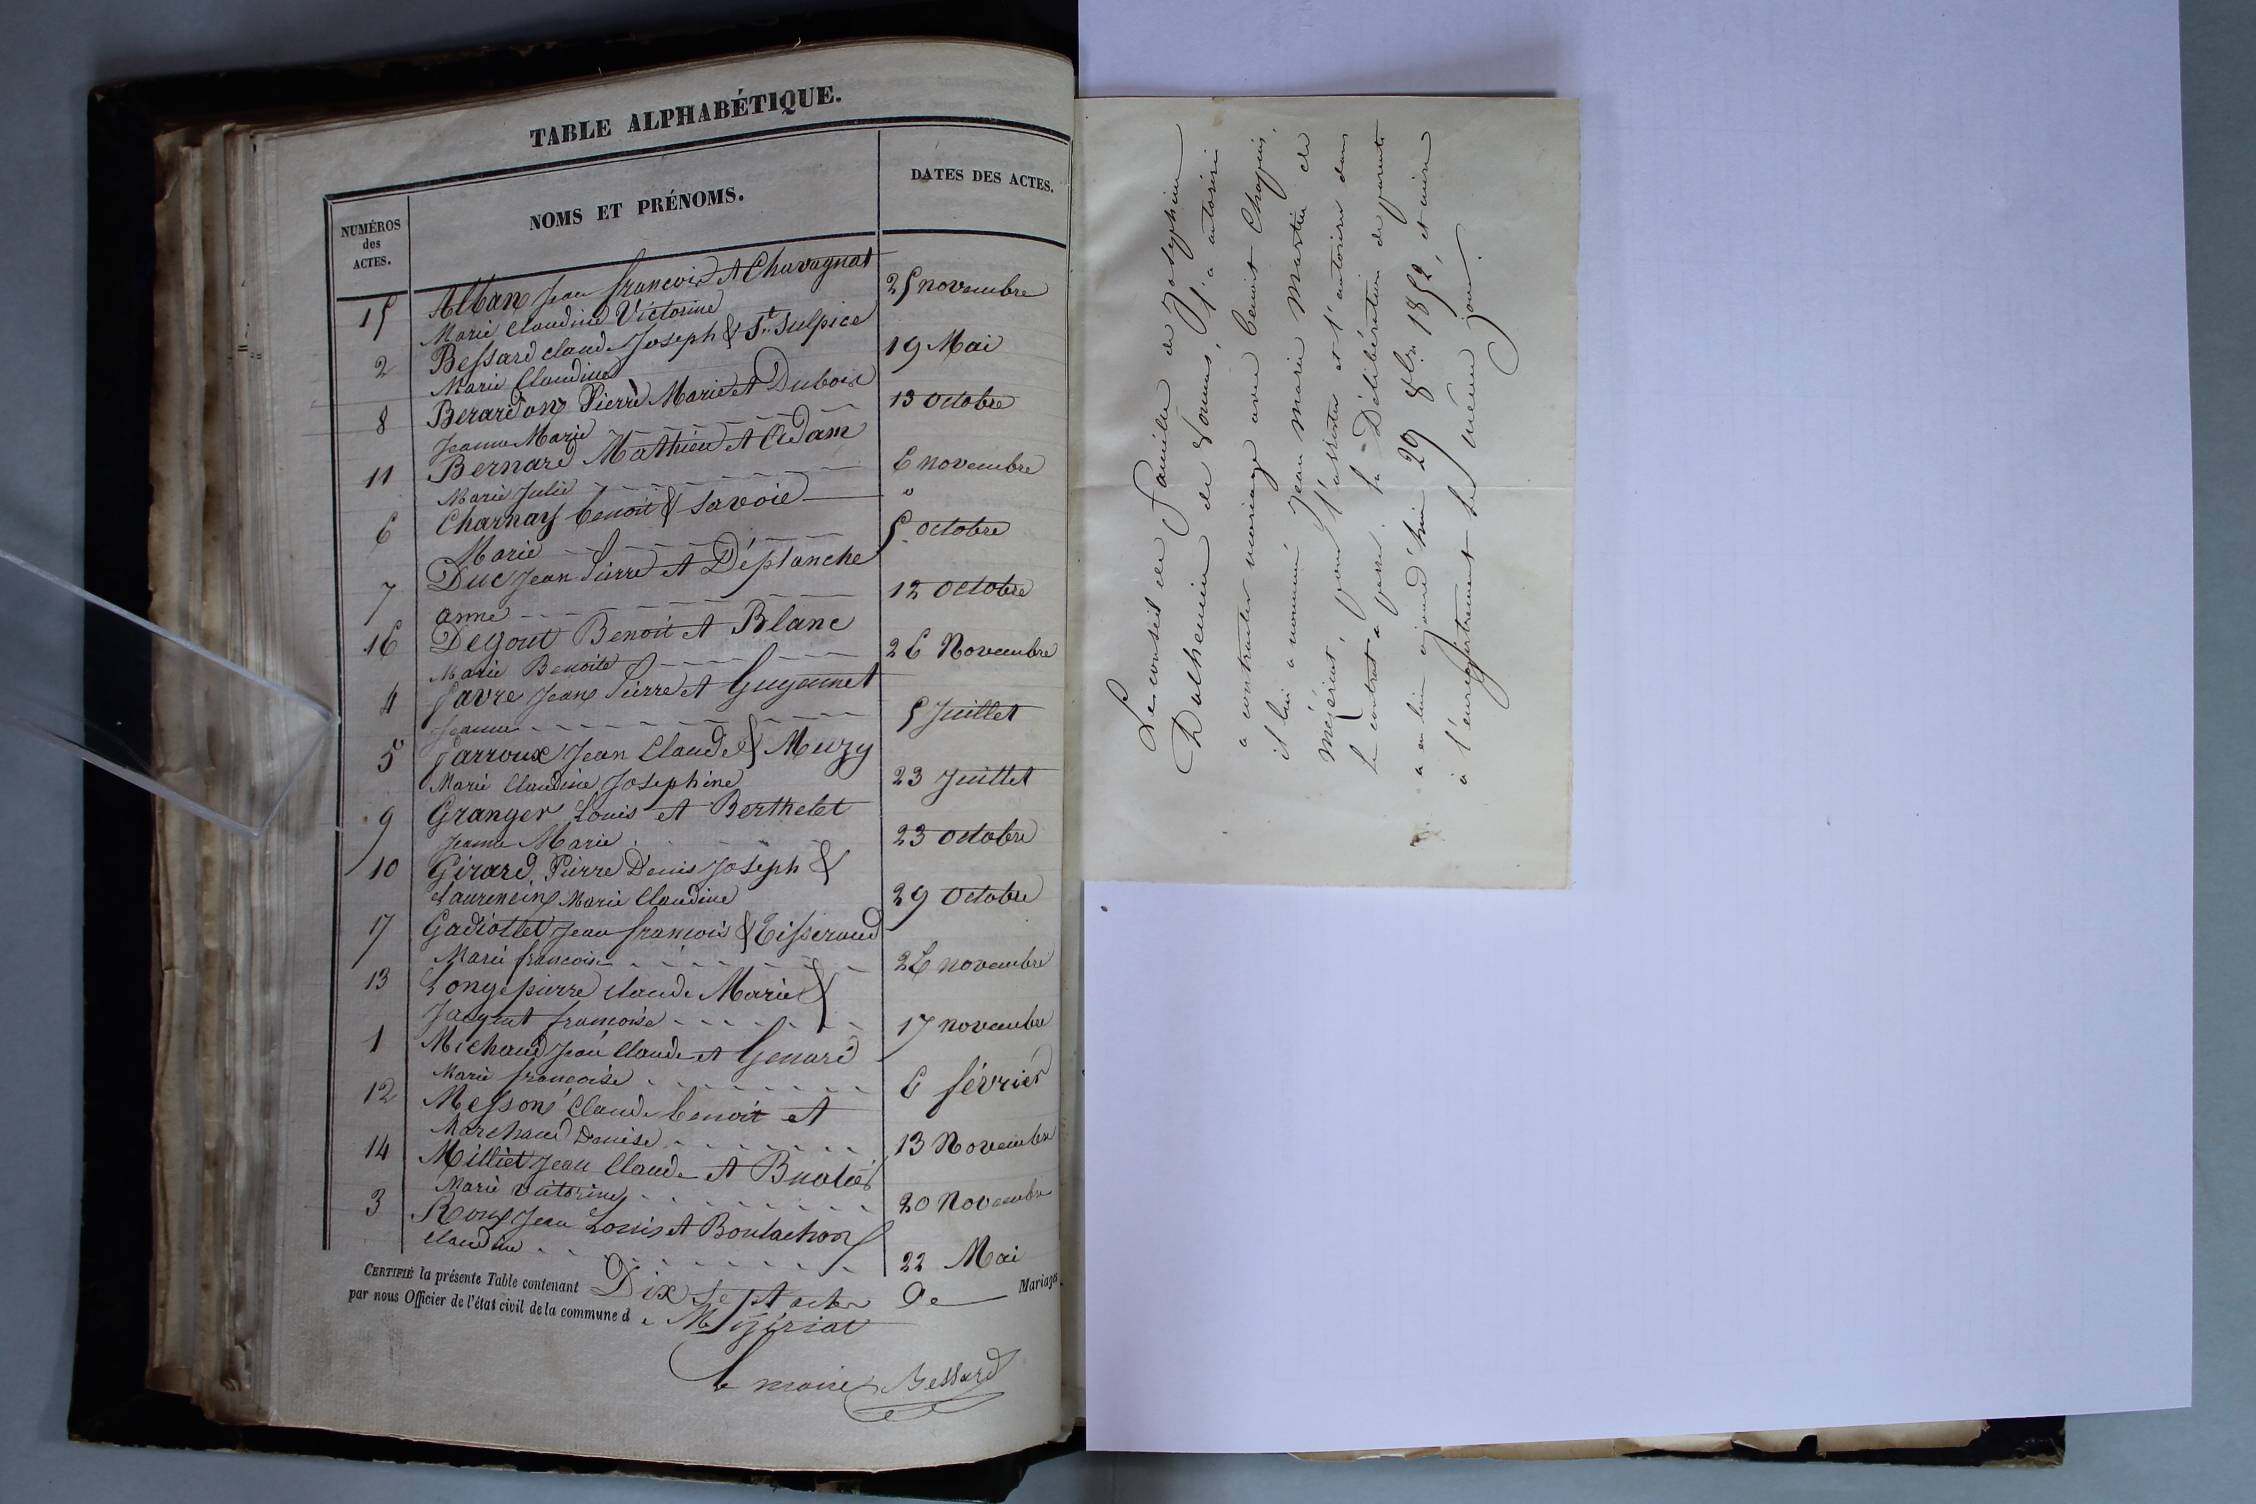 TABLE ALPHABÉTIQUE.
NUMÉROS
des
ACTES.
NOMS ET PRÉNOMS.
DATES DES ACTES.
15 Alban Jean françois et Chavagnat 25 novembre
Marie Claudine Victorine
2 Bessard claude Joseph & St Sulpice 19 Mai
Marie Claudine
8 Berardan Pierre Marie et Dubois 13 octobre
Jeanne Marie
11 Bernard Mathieu et Adam 6 novembre
Marie Julie
6 Charnay benoit & Savoie 5 octobre
Marie
7 Duc Jean Pierre et Déplanche 12 octobre
anne
16 Degout Benoit et Blanc 26 Novembre
Marie Benoite
4 favre Jean Pierre et Guyennet 5 Juillet
Jeanne
5 farroux Jean Claude & Muzy 23 Juillet
Marie Claudine Josephine
9 Granger Louis et Berthelet 23 octobre
Jeanne Marie
10 Girard Pierre Denis Joseph & 29 octobre
Laurencin Marie Claudine
17 Gadiollet Jean francois & Tisserand 26 novembre
Marie francoise
13 Longepierre claude Marie & 17 novembre
Jacquet francoise
1 Michaud Jean Claude et Genard 6 février
Marie francoise
12 Messon Claude benoit et 13 Novembre
Marchand Denise
14 Milliet Jean Claude et 20 Novembre
Marie victorine
3 Roux Jean Louis et Boulachon 22 Mai
Claudine
CERTIFIÉ la présente Table contenant Dix Sept actes De Mariages.
par nous Officier de l'état civil de la commune de Mézériat
le maire Bessard
Le conseil de famille de Josephine
Dalhemin de Somans, l'a autorisée
a contracter mariage avec benoit Chapuis,
il lui a nommé Jean marie Martin de
Mézériat, pour l'assister et l'autoriser dans
le contrat a passer. la Délibération de parents
a eu lieu aujourd'hui 29 8bre 1852, et mise
à l'enregistrement le même jour.